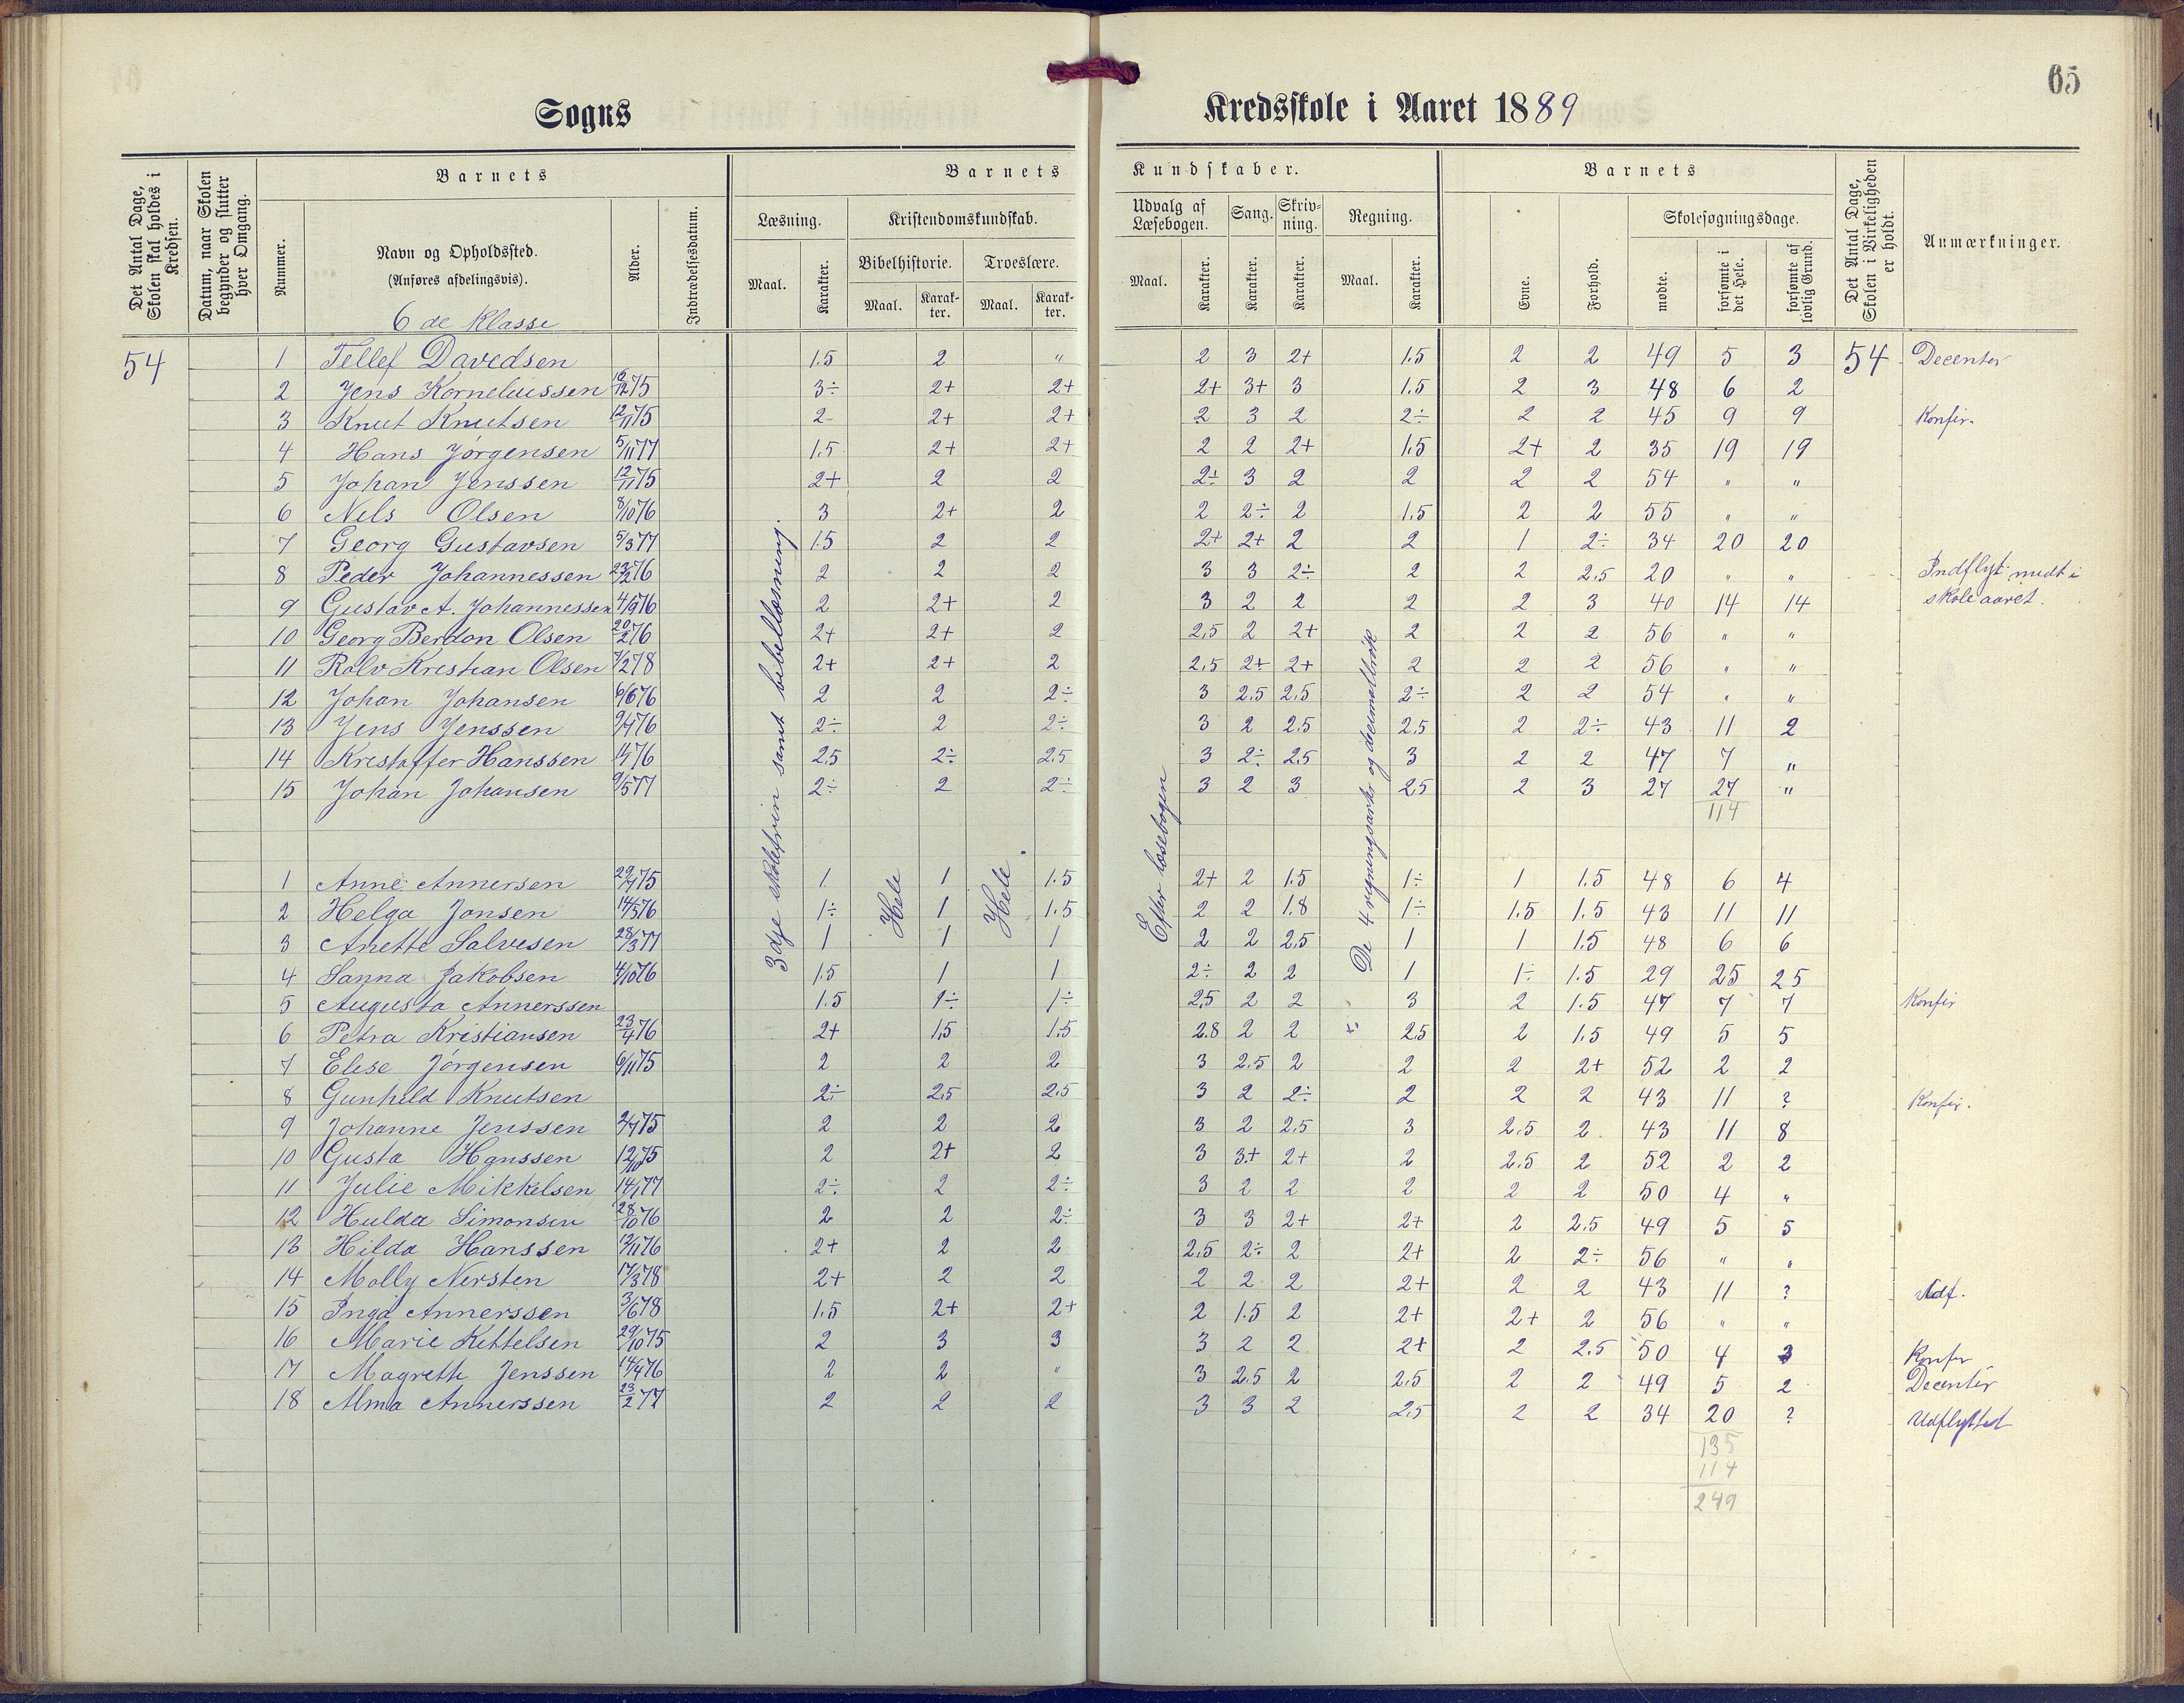 65
Sogns Kredsskole i Aaret 1889
Det Antal Dage, Skolen skal holdes i Kredsen.
Datum, naar Skolen begynder og slutter hver Omgang.
Barnets
Nummer.
Navn og Opholdssted.
(Anføres afdelingsvis).
6 de Klasse
Alder.
Indtrædelsesdatum.
Barnets Kundskaber.
Læsning. Maal. Karakter.
Kristendomskundskab.
Bibelhistorie. Maal. Karakter.
Troeslære. Maal. Karakter.
Udvalg af Læsebogen. Maal. Karakter.
Sang. Karakter.
Skrivning. Karakter.
Regning. Maal. Karakter.
Barnets
Evne. Forhold.
Skolesøgningsdage.
mødte. forsømte i det Hele. forsømte af lovlig Grund.
Det Antal Dage, Skolen i Virkeligheden er holdt.
Anmærkninger.
54 1 Tellef Davedsen 1.5 2 " 2 3 2+ 1.5 2 2 49 5 3 54 Decenter
2 Jens Korneliussen 16/12 75 3÷ 2+ 2+ 2+ 3+ 3 1.5 2 3 48 6 2
3 Knut Knutsen 12/11 75 2- 2+ 2+ 2 3 2 2÷ 2 2 45 9 9 Konfir.
4 Hans Jørgensen 5/11 77 1.5 2+ 2+ 2 2 2+ 1.5 2+ 2 35 19 19
5 Johan Jenssen 12/11 75 2+ 2 2 2÷ 3 2 2 2 2 54 " "
6 Nels Olsen 8/10 76 3 2+ 2 2 2÷ 2 1.5 2 2 55 " "
7 Georg Gustavsen 5/3 77 1.5 2 2 2+ 2+ 2 2 1 2÷ 34 20 20
8 Peder Johannessen 76 2 2 2 3 3 2÷ 2 2 2.5 20 " " Indflyt. midt i
9 Gustav A. Johannessen 4/9 76 2 2+ 2 3 2 2 2 2 3 40 14 14 skoleaaret.
10 Georg Berdon Olsen 20/2 76 2+ 2+ 2 2.5 2 2+ 2 2 2 56 " "
11 Rolv Kristian Olsen 7/2 78 2+ 2+ 2 2.5 2+ 2+ 2 2 2 56 " "
12 Johan Johansen 6/6 76 2 2 2÷ 3 2.5 2.5 2÷ 2 2 54 " "
13 Jens Jenssen 9/4 76 2÷ 2 2÷ 3 2 2.5 2.5 2 2÷ 43 11 2
14 Kristoffer Hanssen 76 2.5 2÷ 2.5 3 2÷ 2.5 3 2 2 47 7 "
15 Johan Johansen 9/5 77 2÷ 2 2÷ 3 2 3 2.5 2 3 27 27 "
114
3dje skoletrin samt bibellæsning.
Hele
Hele
Efter læsebogen
De 4 regningsarter og decimalbrøk
1 Anne Annersen 29/7 75 1 1 1.5 2+ 2 1.5 1÷ 1 1.5 48 6 4
2 Helga Jonsen 14/5 76 1÷ 1 1.5 2 2 1.8 1÷ 1.5 1.5 43 11 11
3 Anette Salvesen 28/3 77 1 1 1 2 2 2.5 1 1 1.5 48 6 6
4 Sanna Jakobsen 4/10 76 1.5 1 1 2÷ 2 2 1 1÷ 1.5 29 25 25
5 Augusta Annerssen 1.5 1÷ 1÷ 2.5 2 2 3 2 1.5 47 7 7 Konfir
6 Petra Kristiansen 23/4 76 2+ 1.5 1.5 2.8 2 2 2.5 2 1.5 49 5 5
7 Elese Jørgensen 6/11 75 2 2 2 3 2.5 2 2 2 2+ 52 2 2
8 Gunhild Knutsen 2÷ 2.5 2.5 3 2 2÷ 2 2 2 43 11 ? Konfir.
9 Johanne Jenssen 2/7 75 2 2 2 3 2 2.5 3 2.5 2 43 11 8
10 Gusta Hanssen 12/10 75 2 2+ 2 3 3+ 2+ 2 2.5 2 52 2 2
11 Julie Mikkelsen 14/1 77 2÷ 2 2÷ 3 2 2 2 2 2 50 4 "
12 Hulda Simonsen 28/10 76 2 2 2÷ 3 3 2+ 2+ 2 2.5 49 5 5
13 Hilda Hanssen 12/11 76 2+ 2 2 2.5 2÷ 2 2+ 2 2÷ 56 " "
14 Molly Nersten 17/3 78 2+ 2 2 2 2 2 2+ 2 2 43 11 ? Udf.
15 Inga Annerssen 3/6 78 1.5 2+ 2+ 2 1.5 2 2+ 2+ 2 56 " "
16 Marie Kittelsen 29/10 75 2 3 3 3 2 2 2+ 2 2.5 50 4 3 Konfir
17 Magreth Jenssen 14/4 76 2 2 " 3 2.5 2 2.5 2 2 49 5 2 Decenter
18 Alma Annerssen 23/2 77 2 2 2 3 3 2 2.5 2 2 34 20 ? Udflyttet
135
114
249